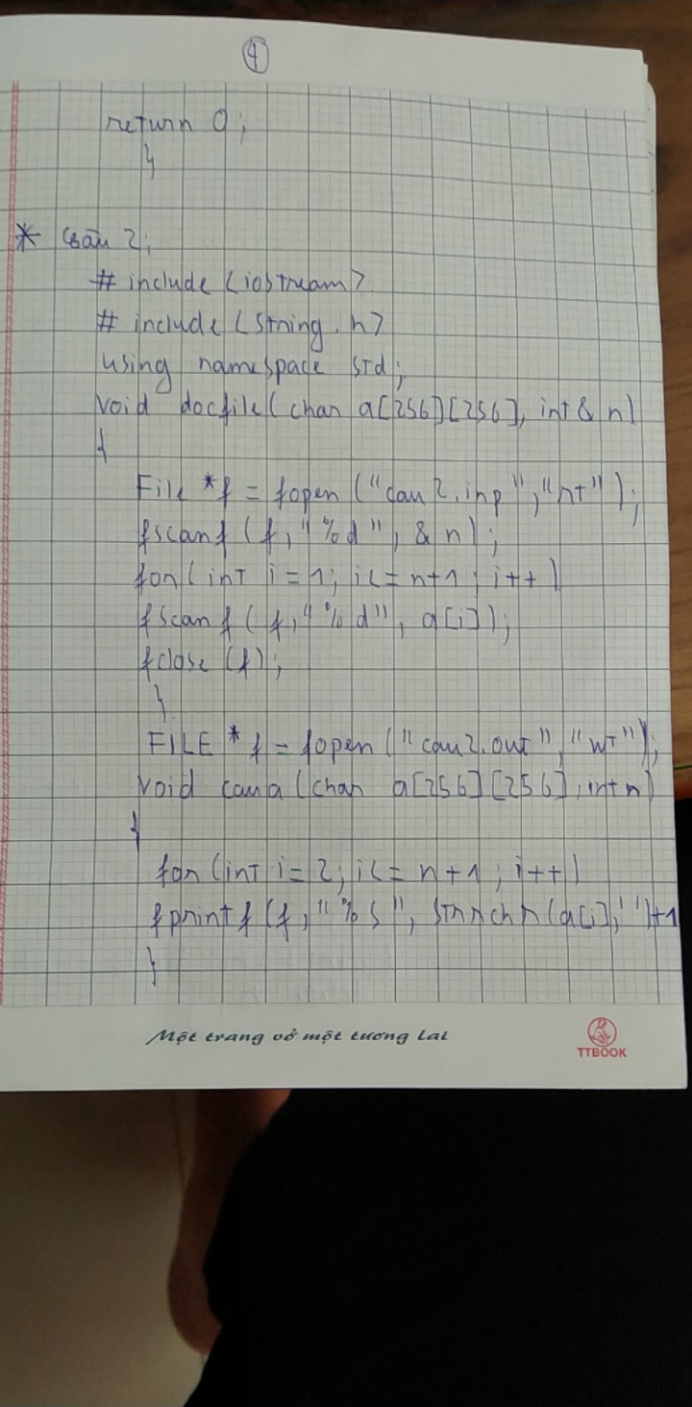 4
return 0;
}
* Câu 2:
# include <iostream>
# include <string.h>
using namespace std;
void docfile(char a[256][256], int & n)
{
File *f = fopen ("cau2.inp","rt");
fscanf (f,"%d", & n);
for(int i=1; i<=n+1; i++)
fscanf (f,"%d", a[i]);
fclose (f);
}
FILE *f = fopen ("cau2.out", "wt");
void caua (char a[256][256], int n)
{
for (int i=2; i<= n+1; i++)
fprintf (f,"%s", strrchr(a[i],' ')+1
}
Một trang vở một tương lai
TTBOOK